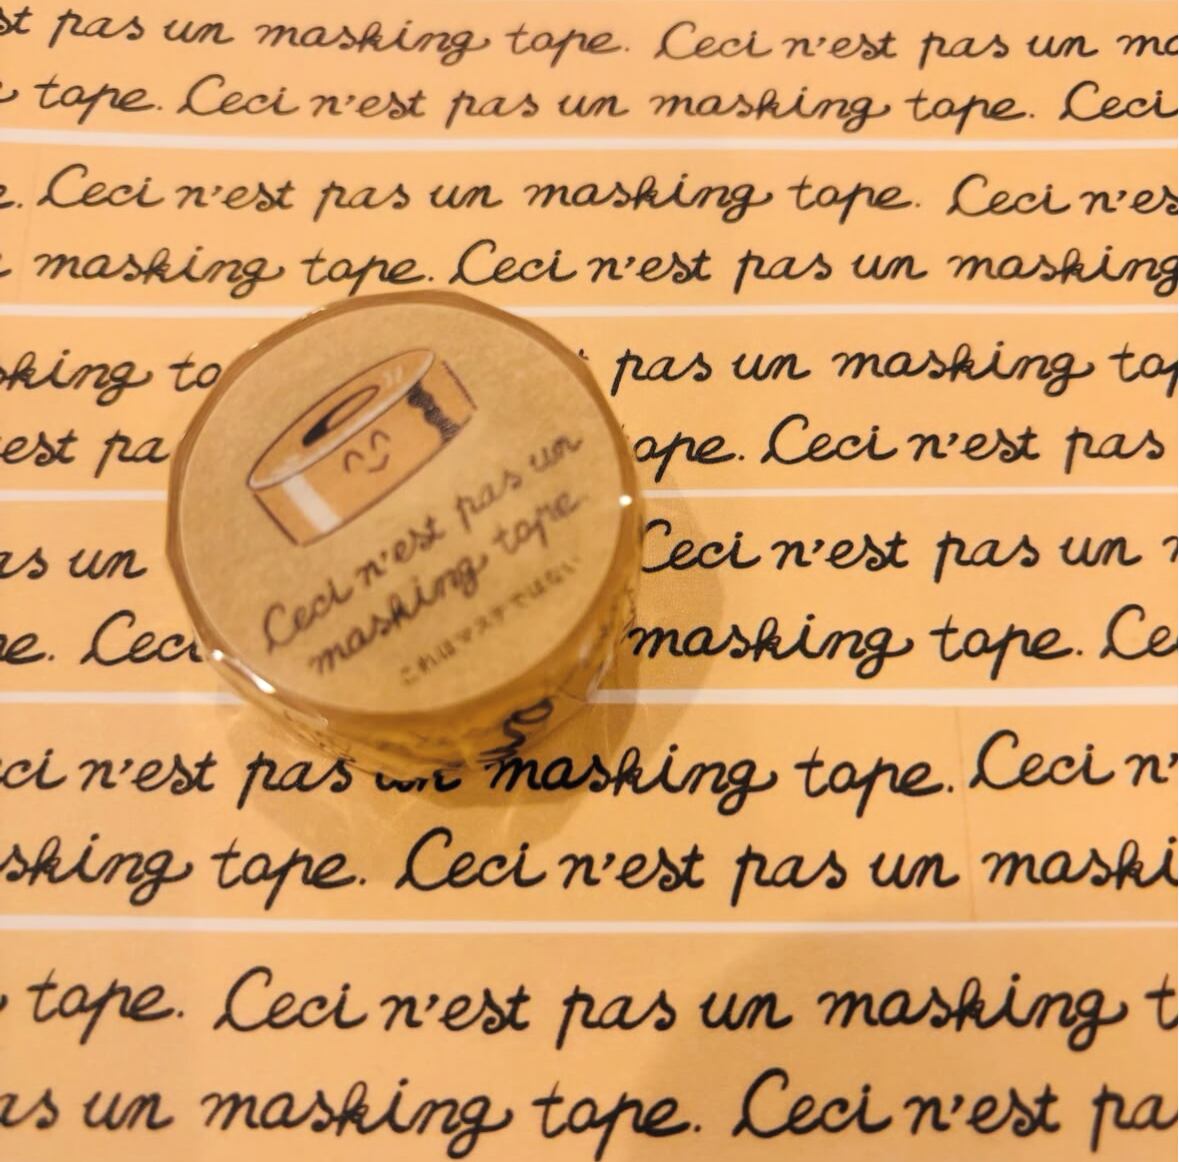 st pas un masking tape. Ceci n'est pas un ma
tape. Ceci n'est pas un masking tape. Ceci
e. Ceci n'est pas un masking tape. Ceci n'es
masking tape. Ceci n'est pas un masking
sking to pas un masking tap
est pa ape. Ceci n'est pas
as un Ceci n'est pas un
pe. Ceci masking tape. Ce
Ceci n'est pas un
masking tape
これはマステではない
ci n'est pas un masking tape. Ceci n'
sking tape. Ceci n'est pas un maski
tape. Ceci n'est pas un masking t
as un masking tape. Ceci n'est pa